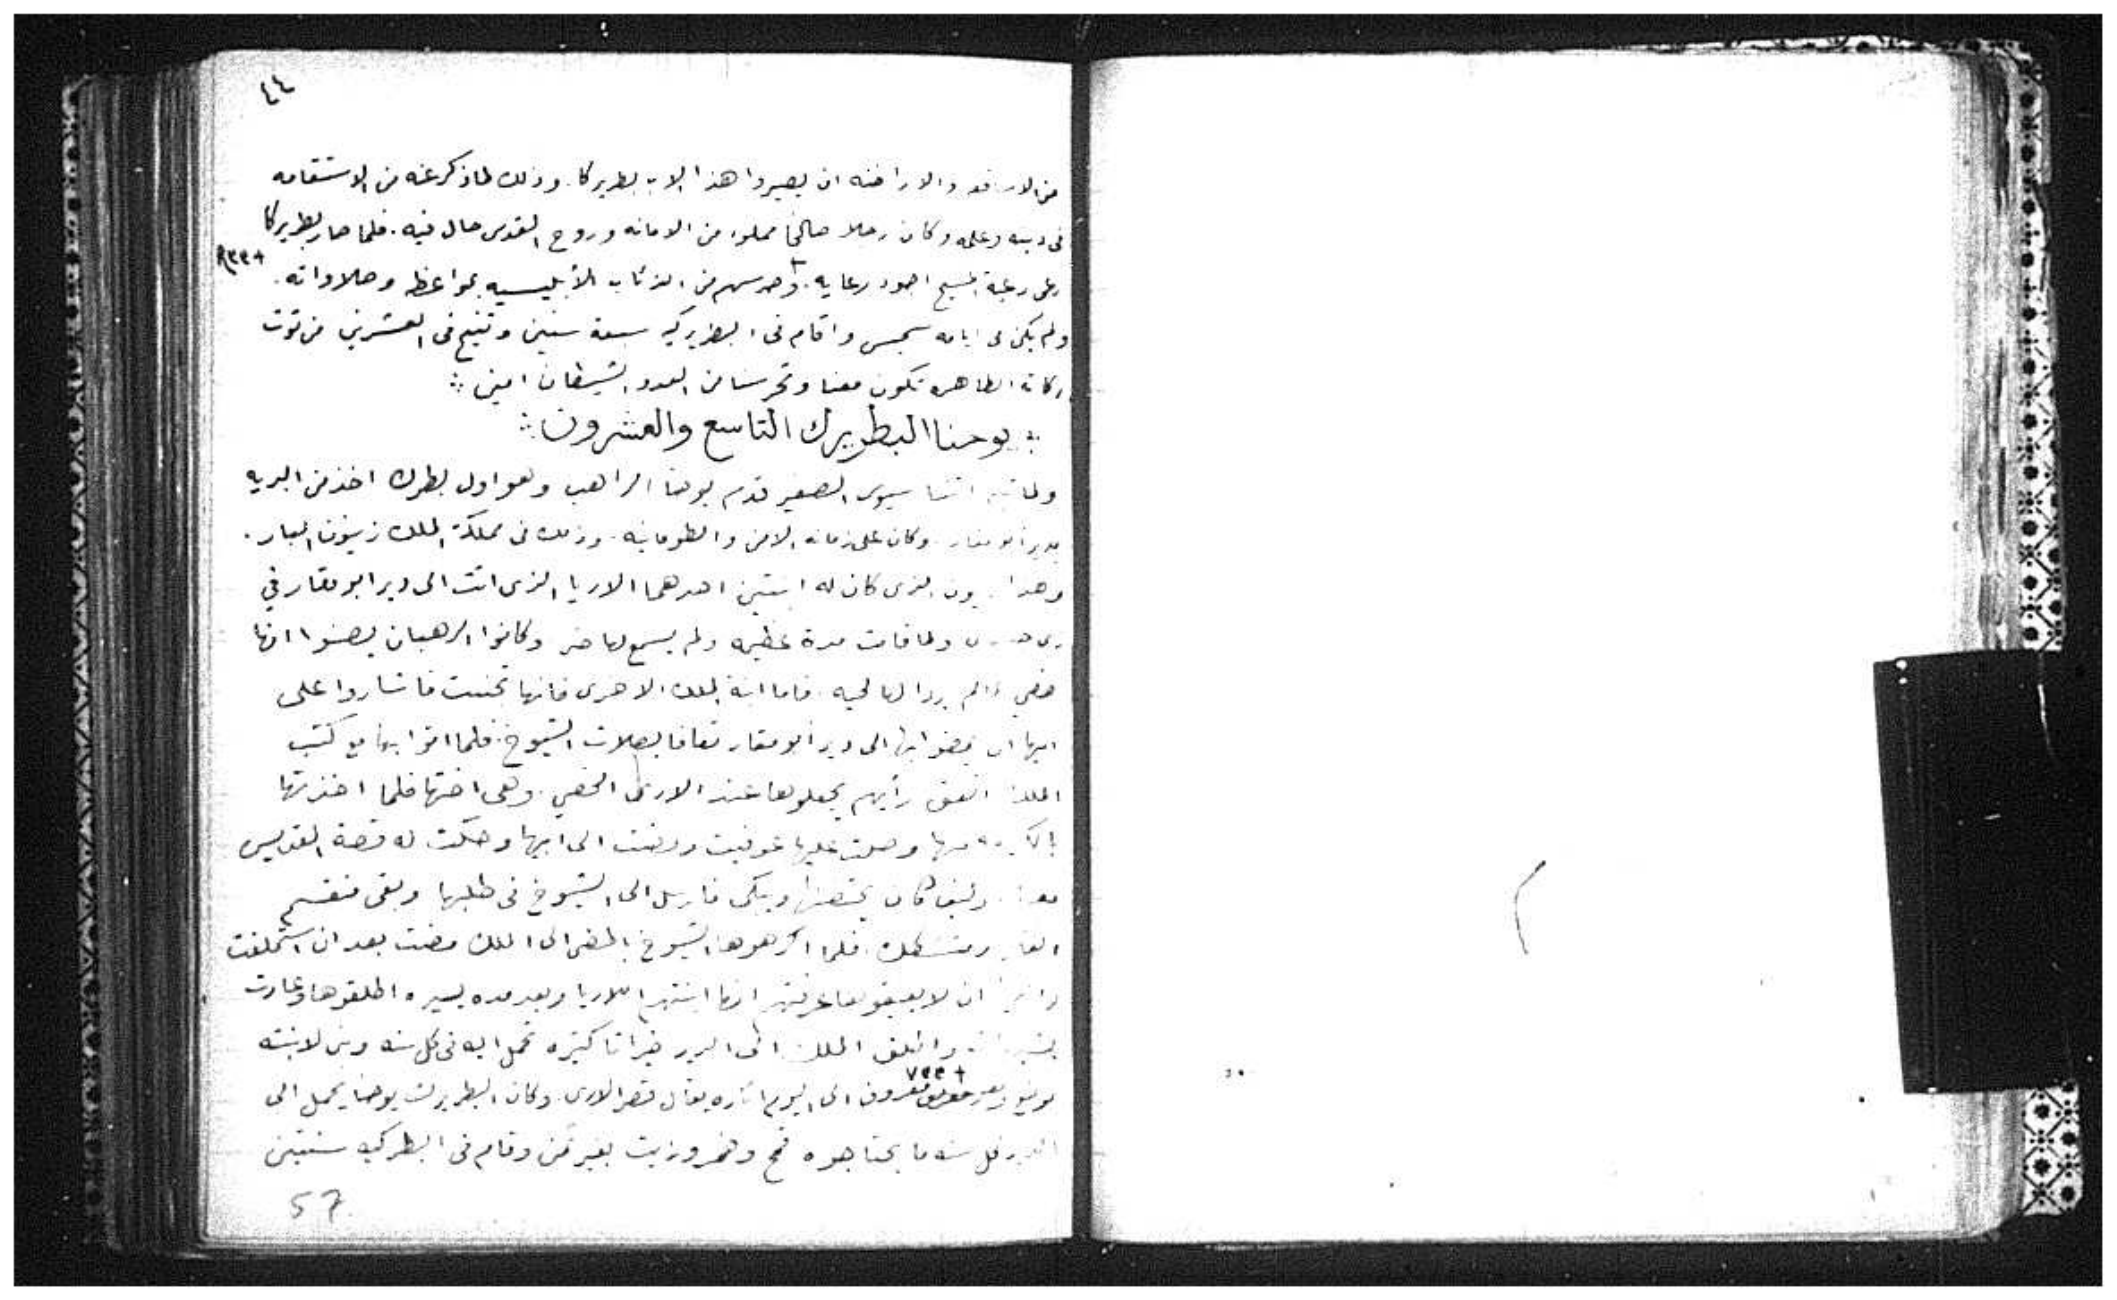 ٤٤
من الاساقفه والاراخنه ان يصيروا هذا الاب بطريركا. وذلك لماذكر عنه من الاستقامه
فى دينه وعلمه وكان رجلا صالحا مملوء من الامانه وروح القدس حال فيه. فلما صار بطريركا
رعى رعية المسيح اجود رعايه. وحرسهم من الذئاب الأبليسيه بمواعظه وصلاواته.
ولم يكن فى ايامه سجس واقام فى البطريركيه سبعة سنين وتنيح فى العشرين من توت
بركاته الطاهره تكون معنا وتحرسنا من العدو الشيطان امين
يوحنا البطريرك التاسع والعشرون
ولما تنيح اتناسيوس الصغير قدم يوحنا الراهب وهو اول بطرك اخذ من البريه
بدير ابو مقار. وكان على زمانه الامن والطومانينه. وذلك فى مملكة الملك زينون البار.
وهذا زينون الذى كان له ابنتين احدهما الاريا الذى اتت الى دير ابو مقار في
زى ولما قامت مدة عظيمه ولم يسمع لها خبر وكانوا الرهبان يضنوا انها
خصي ولم يروا لها لحيه. فاما ابنة الملك الاخرى فانها تجننت فاشاروا على
ابيها ان يمضوا بها الى دير ابو مقار تعافا بصلات الشيوخ. فلما اتوا بها مع كتب
الملك اتفق رأيهم يجعلوها عند الارى الخصي. وهى اختها فلما اخذتها
وصلت عليها عوفيت ومضت الى ابيها وحكت له قصة القديس
معها. وكيف كان يحتضنها ويبكى فارسل الى الشيوخ فى طلبها وبقى منقسم
ومتشكك. فلما اكرهوها الشيوخ بالمضى الى الملك مضت بعد ان استحلفت
ان لا يعيقوها عرفتهم انها ابنتهم الاريا وبعد مده يسيره اطلقوها وعادت
واطلق الملك الى الدير خيراتا كتيره تحمل اليه فى كل سنه وبنى لابنته
معروف الى اليوم اثاره يقال قصر الارى. وكان البطريرك يوحنا يحمل الى
الدير كل سنه ما يحتاجوه قمح وخمر وزيت بغير ثمن وقام فى البطركيه سنتين
57